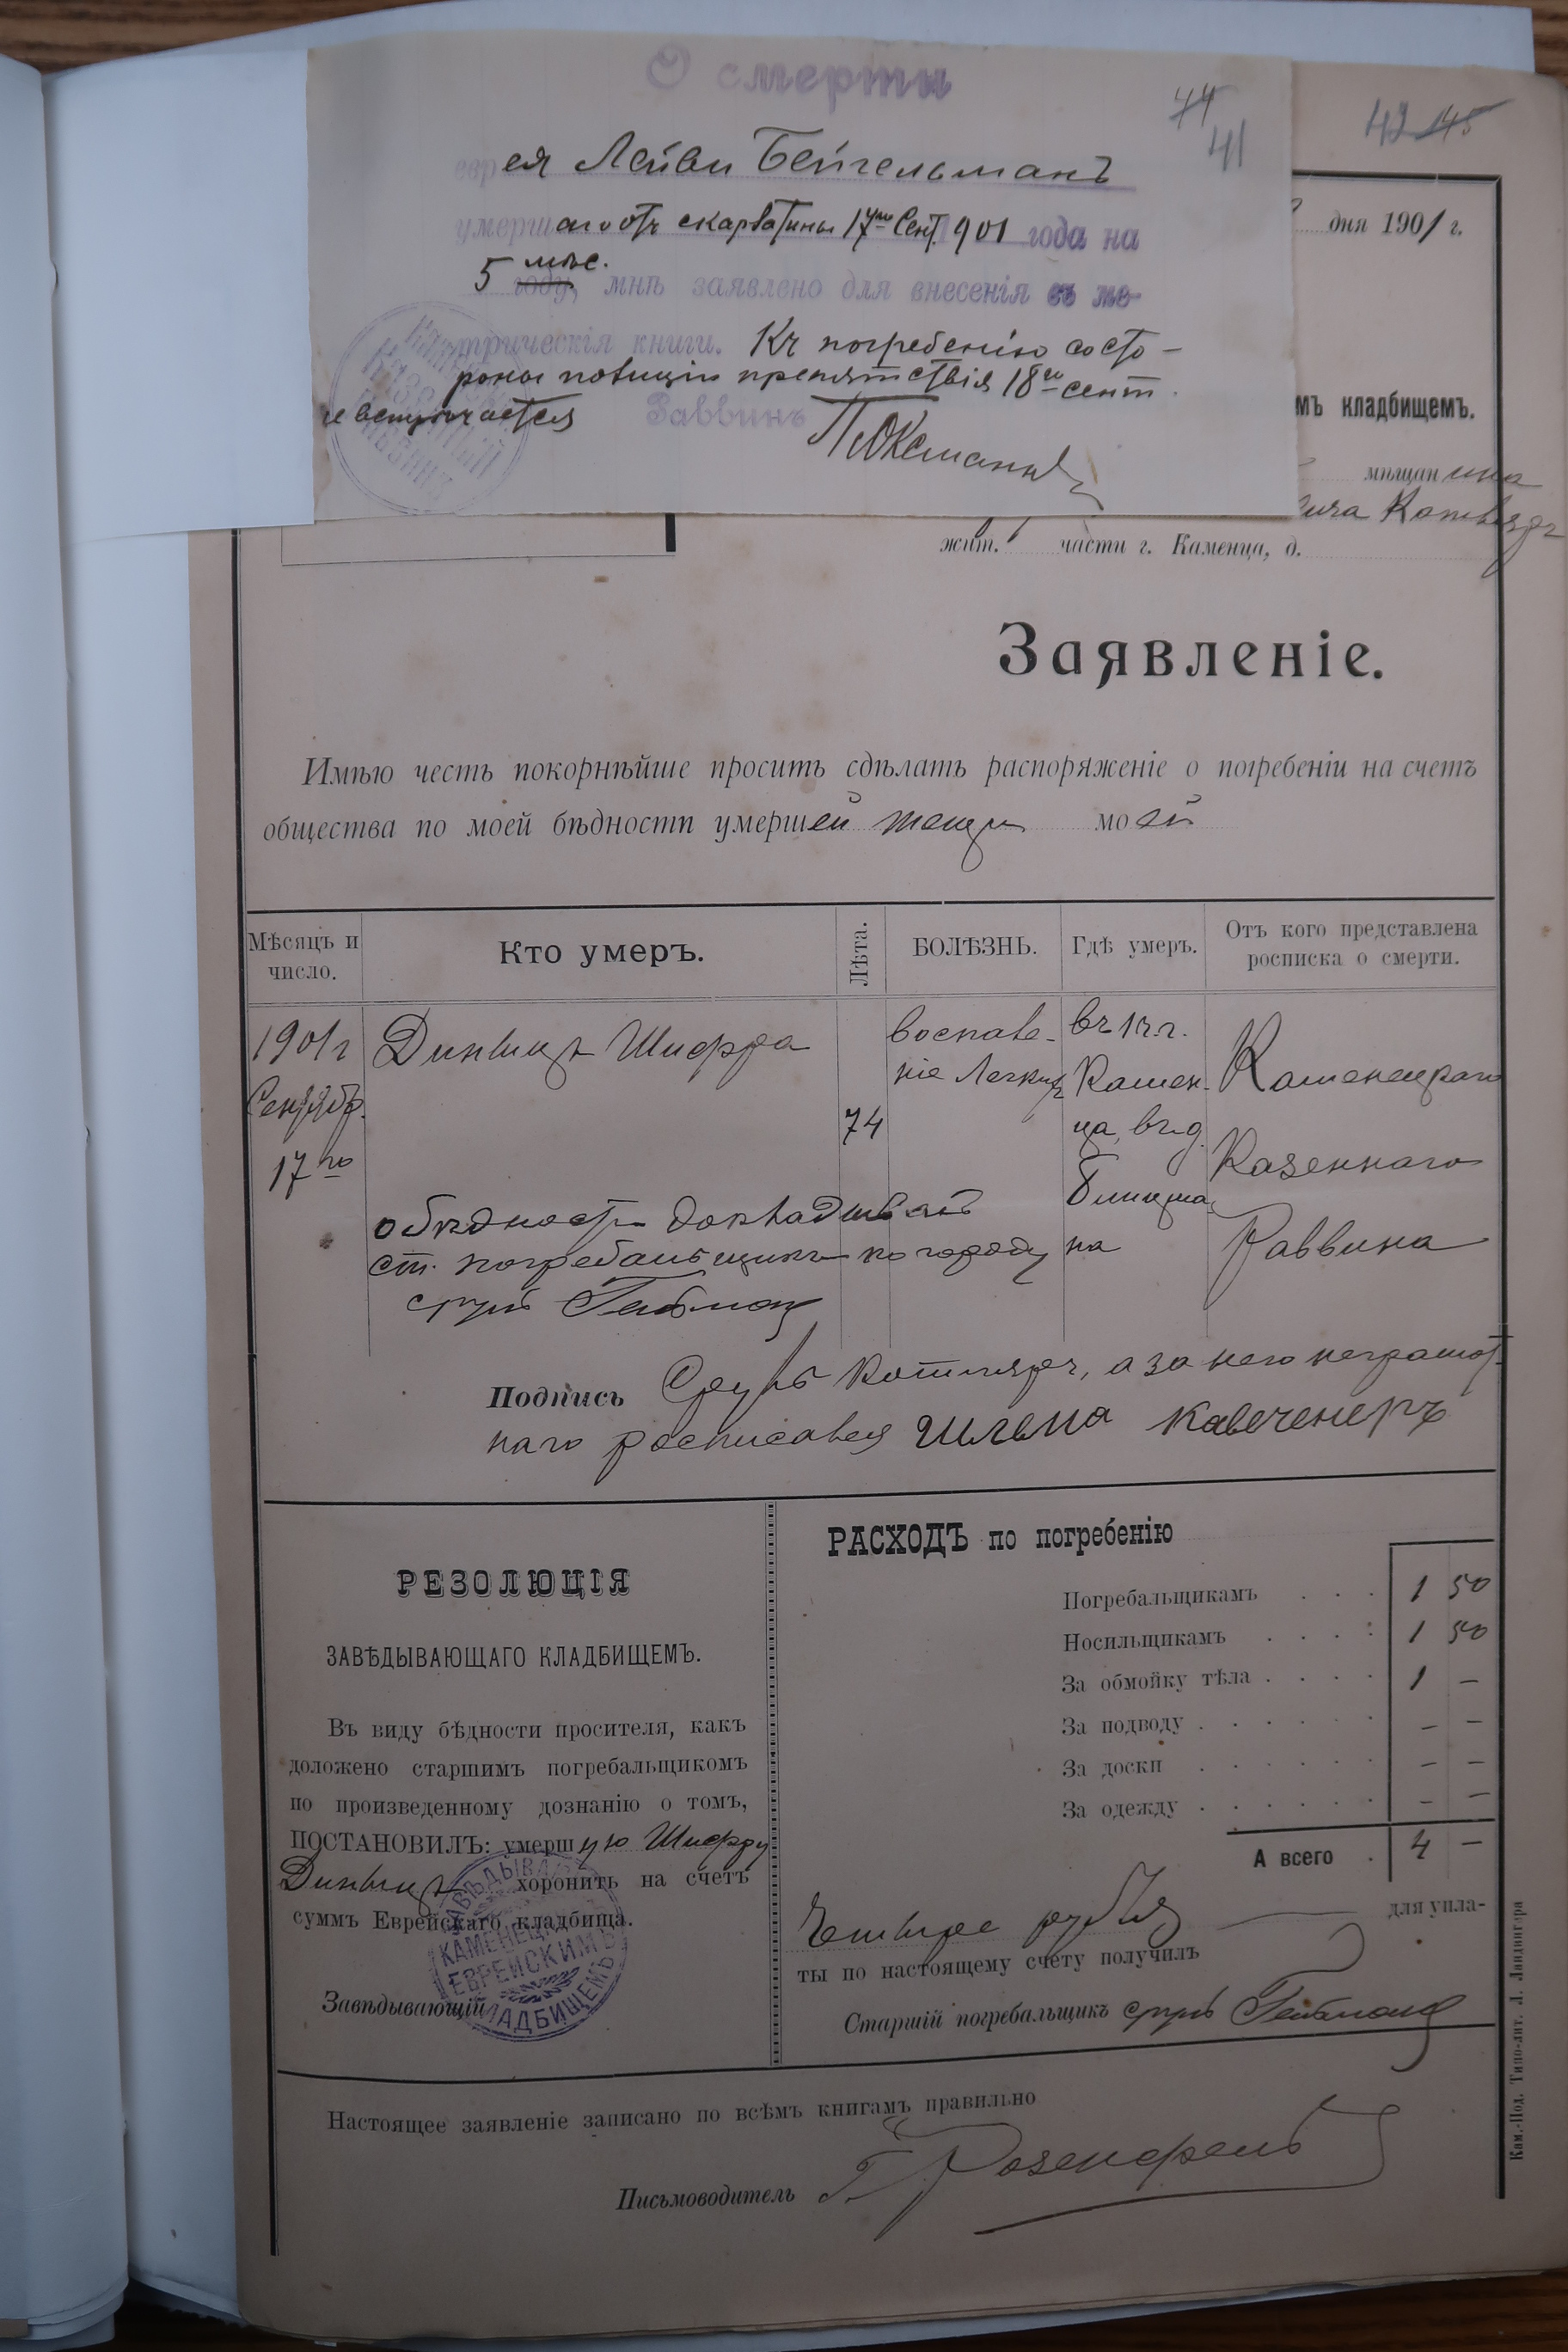 О смерти
44
41
42 145
еврея Лейви Бейгельманъ
умершаго отъ скарлатины 17го Сент. 1901 года на
5 мѣс. году, мнѣ заявлено для внесенія въ ме-
трическія книги. Къ погребенію со сто-
роны полиціи препятствія 18го сент.
не встрѣчается Раввинъ
дня 1901 г.
мъ кладбищемъ.
мѣщанина
жит. 1 части г. Каменца, д.
Заявленіе.
Имѣю честь покорнѣйше просить сдѣлать распоряженіе о погребеніи на счетъ
общества по моей бѣдности умершей тещи моей
Мѣсяцъ и число.
Кто умеръ.
Лѣта.
БОЛѢЗНЬ.
Гдѣ умеръ.
Отъ кого представлена росписка о смерти.
1901 г Сентябр. 17го
Шифра
74
воспале- ніе Легкихъ
въ 1 ч. г. Камен- ца, въ д.
Каменецкаго Казеннаго Раввина
о бѣдности докладывалъ
ст. погребальщикъ по городу
сруль Гейбманъ
Подпись Сруль Котляръ, а за него неграмот-
наго росписался Шльма
РЕЗОЛЮЦІЯ
ЗАВѢДЫВАЮЩАГО КЛАДБИЩЕМЪ.
Въ виду бѣдности просителя, какъ
доложено старшимъ погребальщикомъ
по произведенному дознанію о томъ,
ПОСТАНОВИЛЪ: умершую Шифру
хоронить на счетъ
суммъ Еврейскаго кладбища.
Завѣдывающій
ЗАВѢДЫВАЮЩІЙ КАМЕНЕЦКИМЪ ЕВРЕЙСКИМЪ КЛАДБИЩЕМЪ
РАСХОДЪ по погребенію
Погребальщикамъ . . . 1 50
Носильщикамъ . . . . 1 50
За обмойку тѣла . . . . 1 —
За подводу . . . . . . — —
За доски . . . . . . — —
За одежду . . . . . . — —
А всего . 4 —
Четыре рубля для упла-
ты по настоящему счету получилъ
Старшій погребальщикъ сруль Гейбманъ
Настоящее заявленіе записано по всѣмъ книгамъ правильно
Письмоводитель Г. Розенфельд
Кам.-Под. Типо-лит. Л. Ландвигера